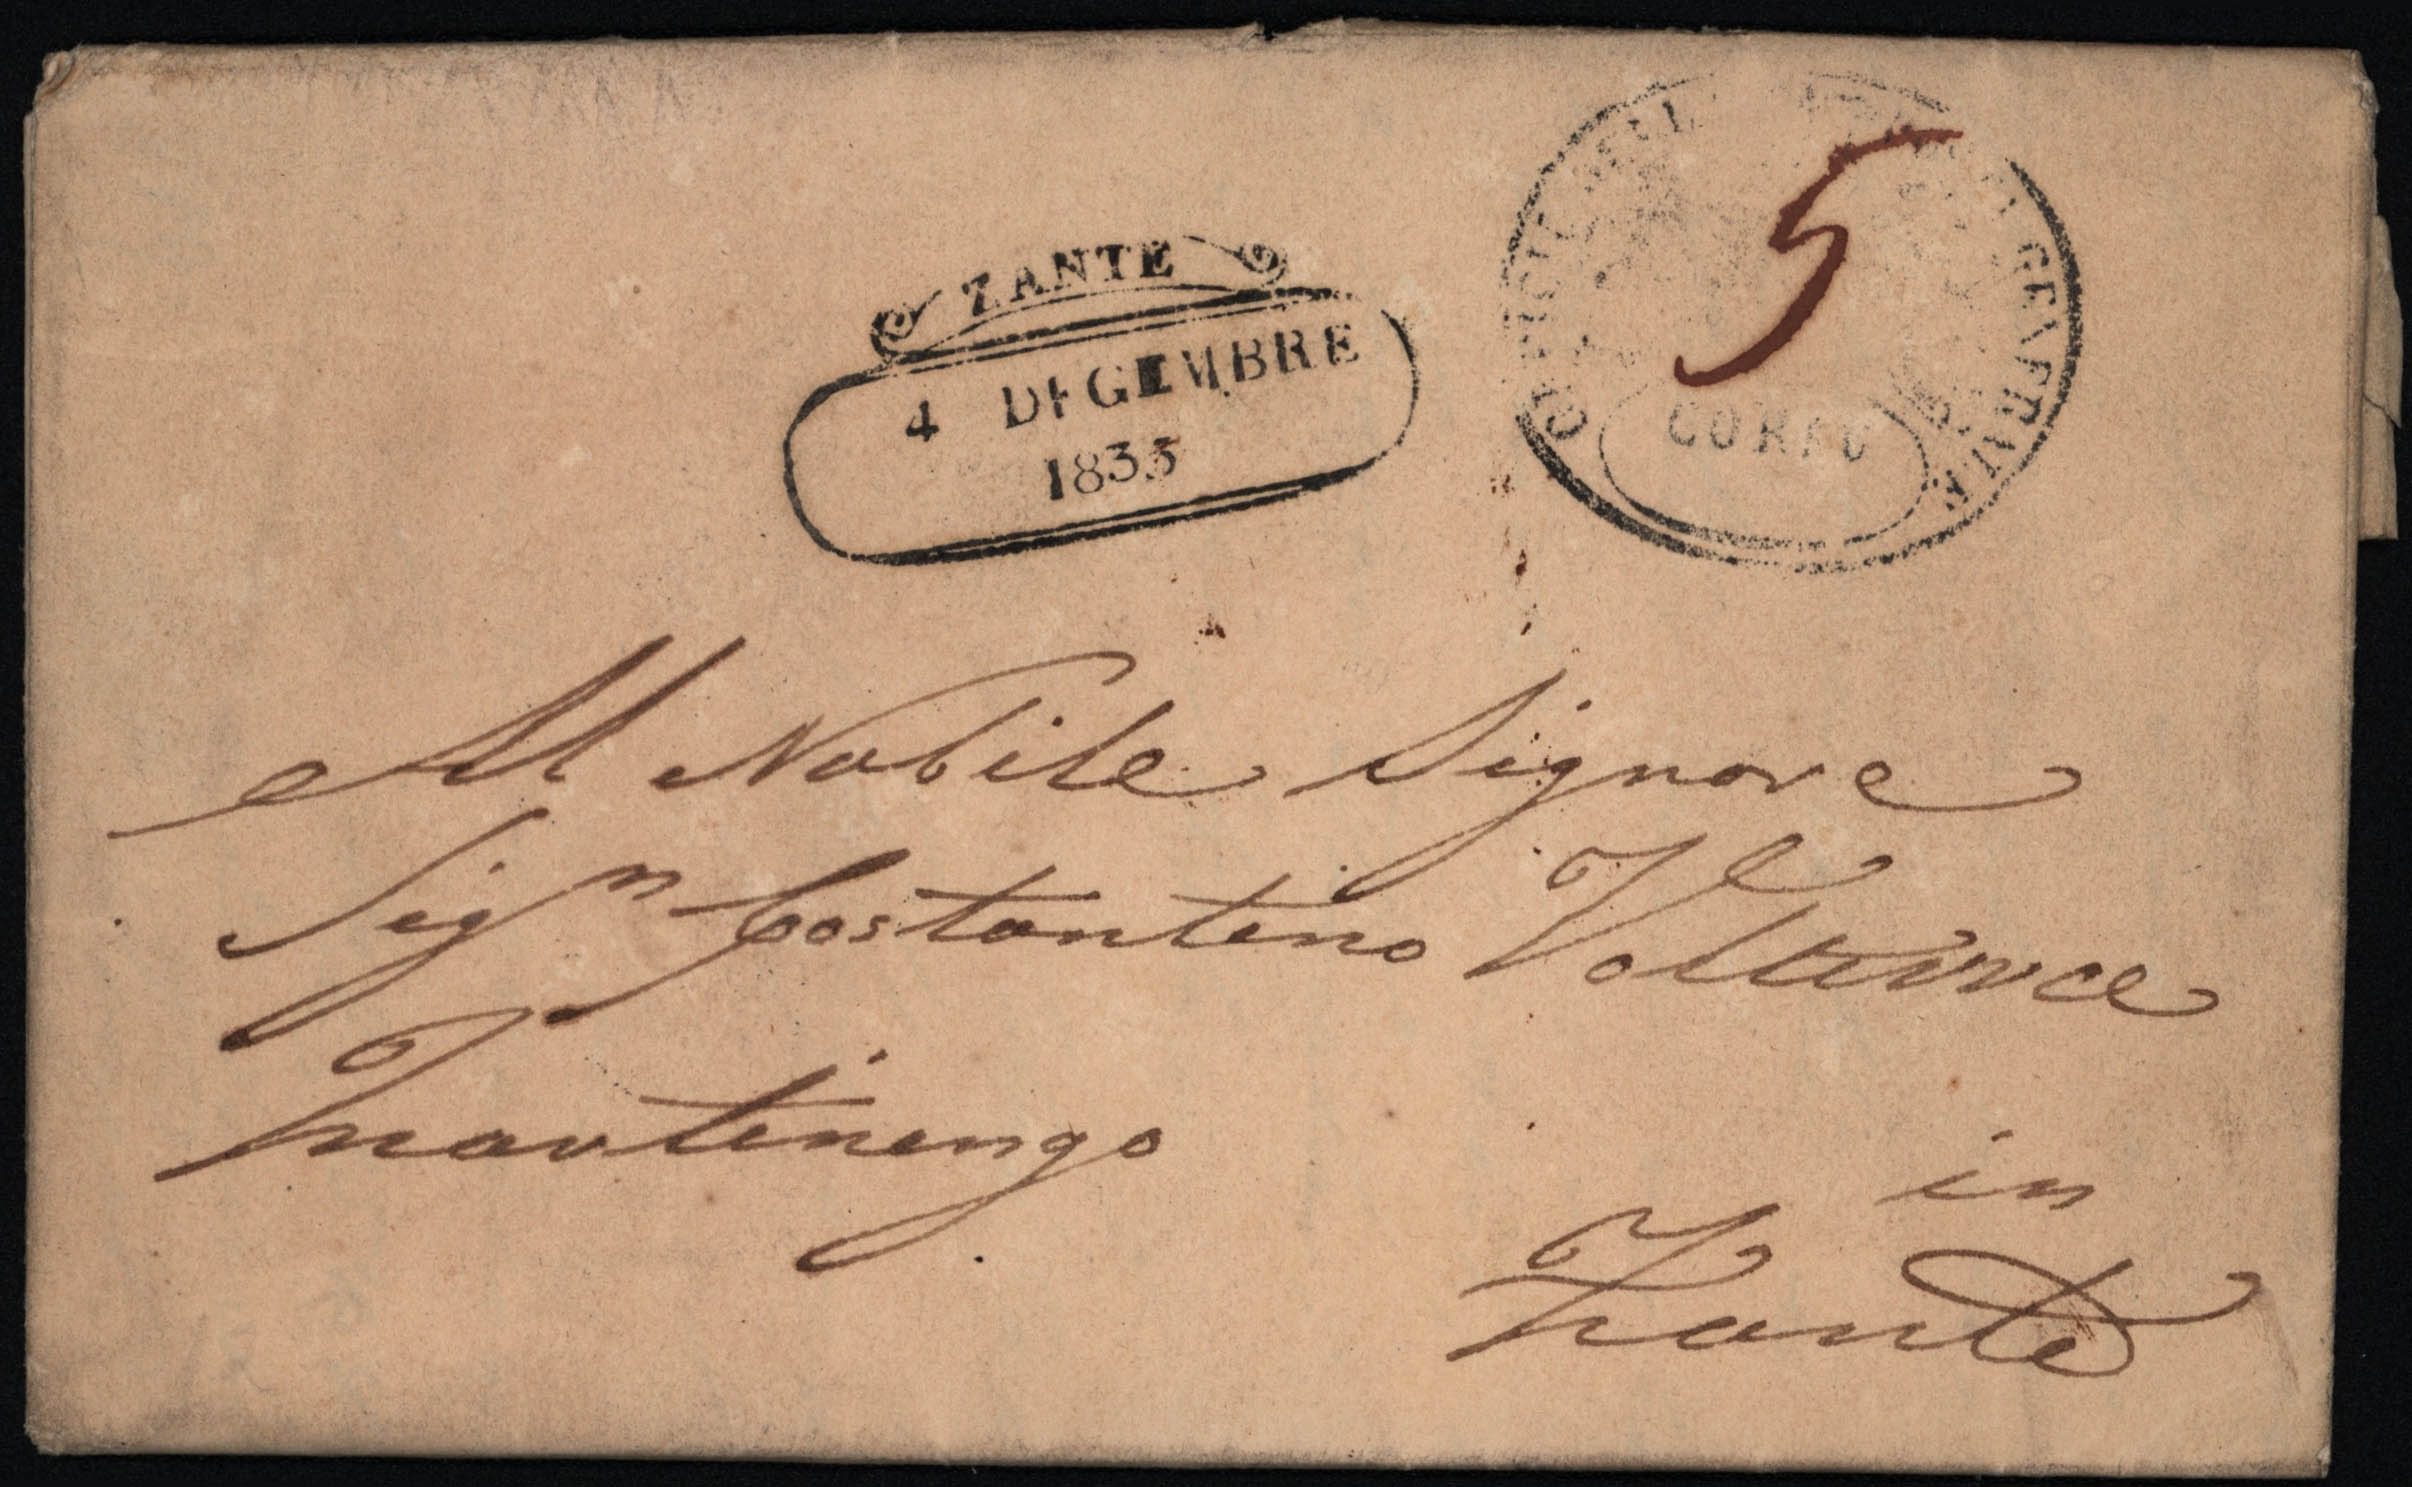 ZANTE
4 DECEMBRE
1833
OFFICIO DELLA POSTA GENERALE
CORFU
5
Al Nobile Signore
Sigr Costantino Volterra
Martinengo
in
Zante